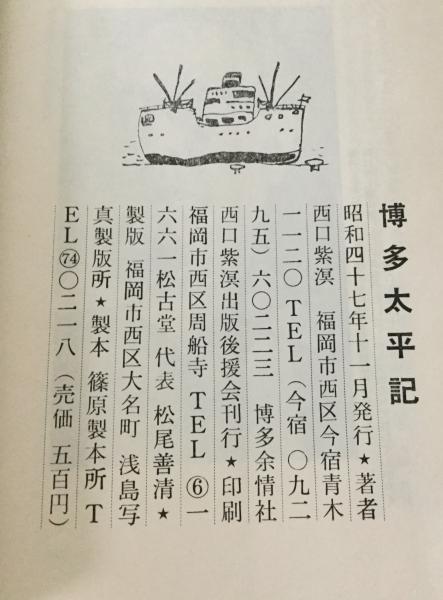 博多太平記
昭和四十七年十一月発行★著者
西口紫溟　福岡市西区今宿青木
一一二〇ＴＥＬ（今宿〇九二
九五）六〇二二三　博多余情社
西口紫溟出版後援会刊行★印刷
福岡市西区周船寺ＴＥＬ⑥一
六六一松古堂　代表　松尾善清★
製版　福岡市西区大名町　浅島写
真製版所★製本　篠原製本所　Ｔ
ＥＬ㊆〇二一八（売価　五百円）